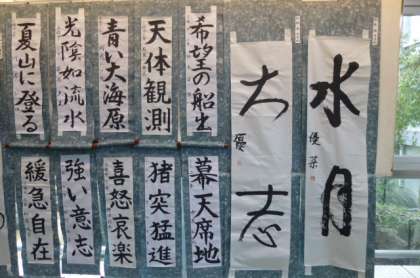 水月
大志
希望の船出
天体観測
青い大海原
光陰如流水
夏山に登る
幕天席地
猪突猛進
喜怒哀楽
強い意志
緩急自在